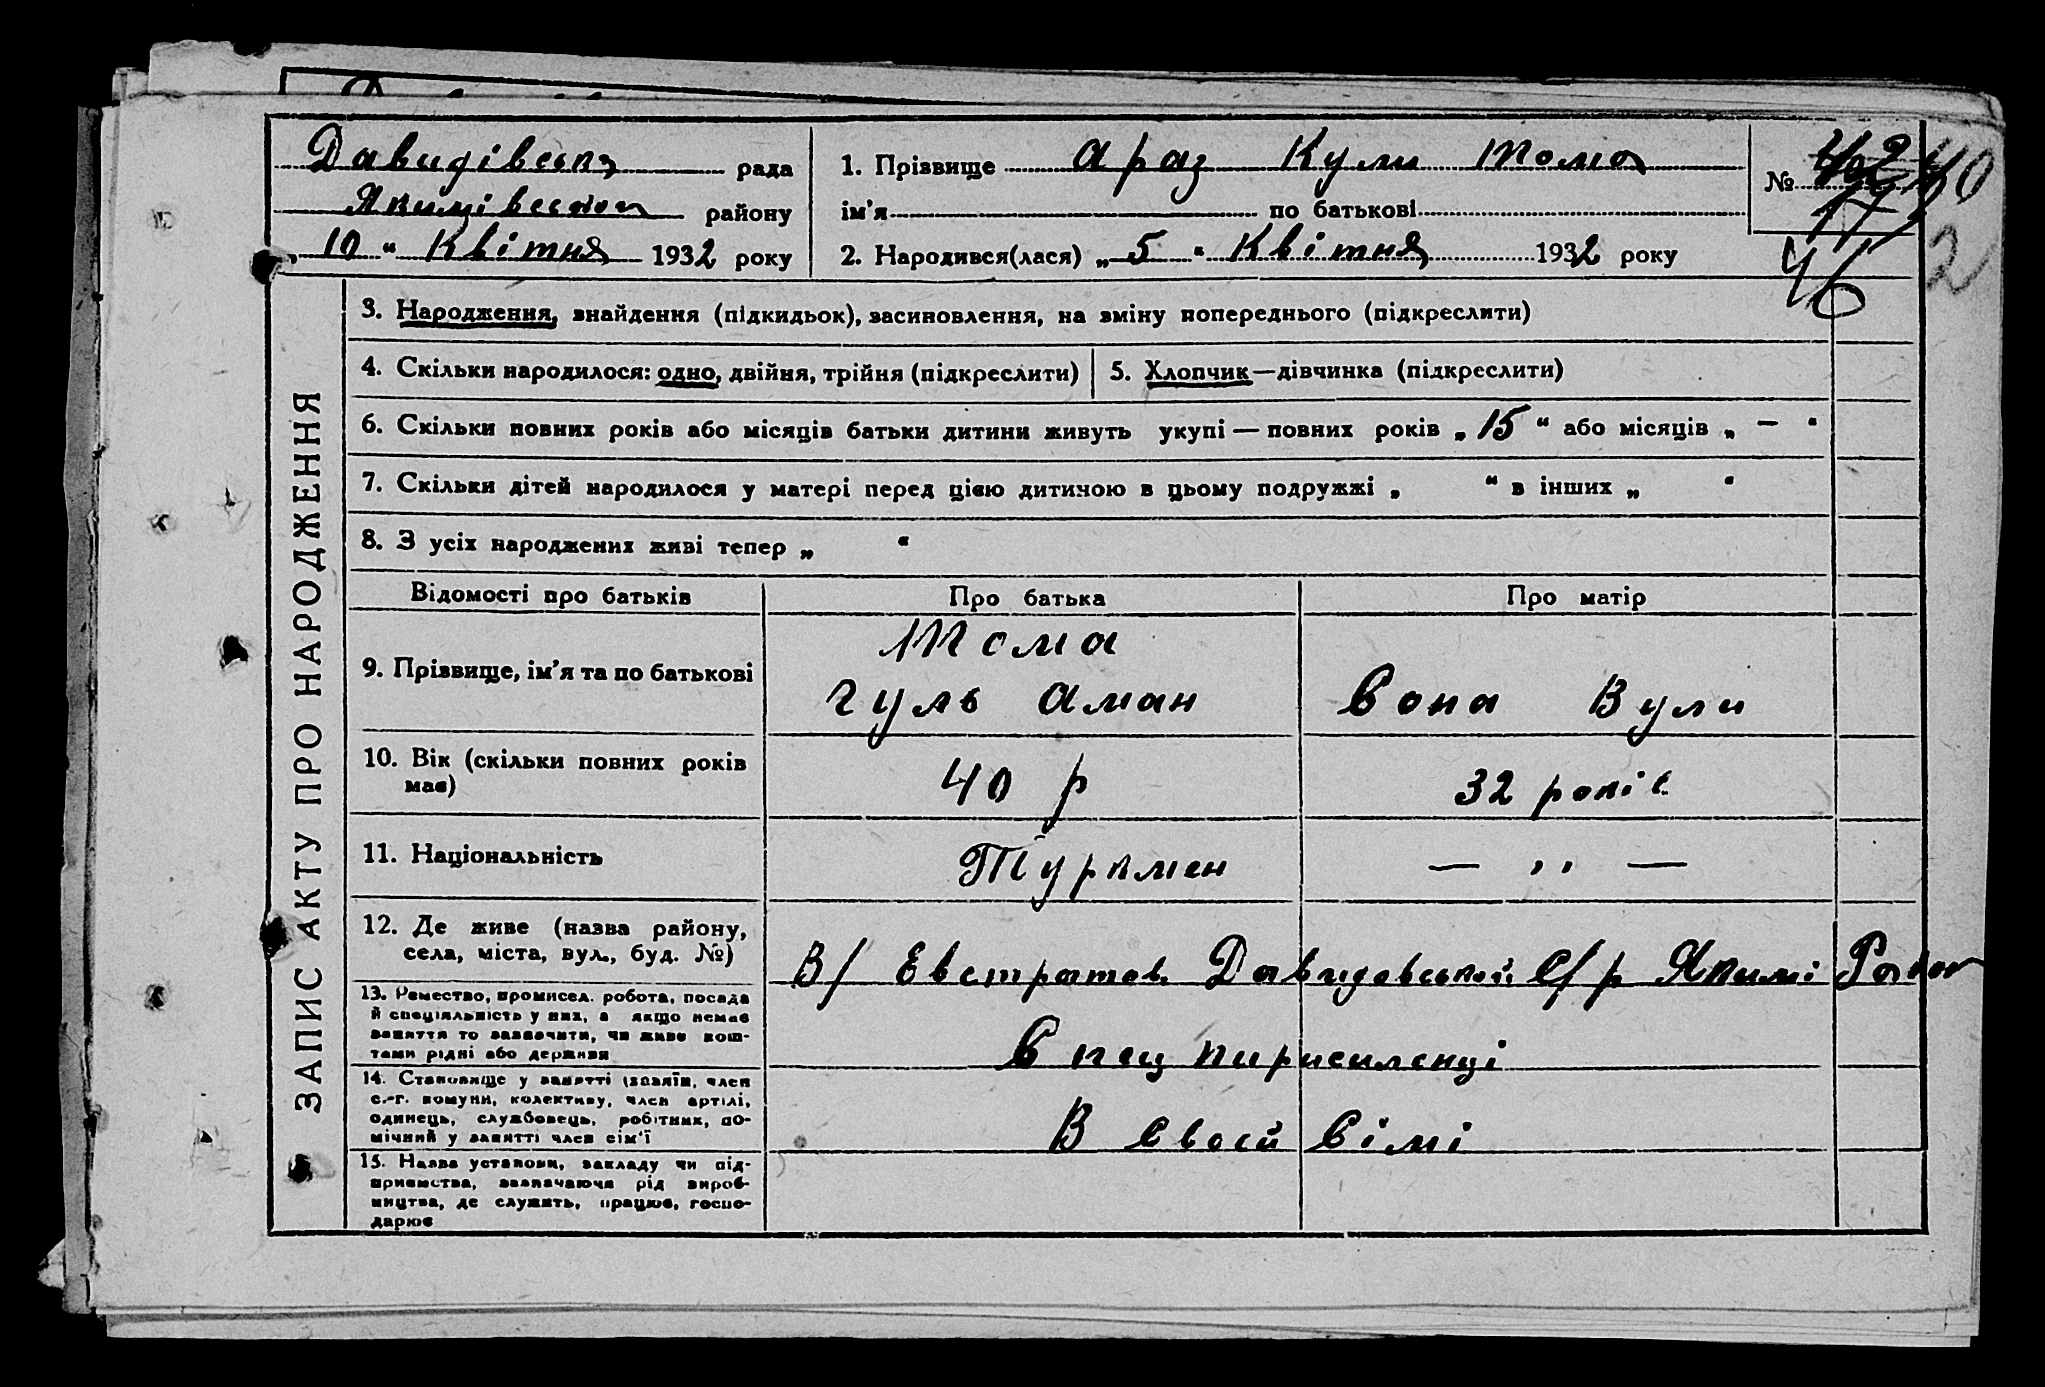 Давидівська рада
Якимівського району
„ 10 " Квітня 1932 року
1. Прізвище Араз Кули Тома
ім’я по батькові
2. Народився(лася) „ 5 " Квітня 1932 року
№ 40
46
2
ЗАПИС АКТУ ПРО НАРОДЖЕННЯ
3. Народження, знайдення (підкидьок), засиновлення, на зміну попереднього (підкреслити)
4. Скільки народилося: одно, двійня, трійня (підкреслити)
5. Хлопчик—дівчинка (підкреслити)
6. Скільки повних років або місяців батьки дитини живуть укупі — повних років „ 15 " або місяців „ — "
7. Скільки дітей народилося у матері перед цією дитиною в цьому подружжі „ " в інших „ "
8. З усіх народжених живі тепер „ "
Відомості про батьків
Про батька
Про матір
9. Прізвище, ім’я та по батькові
Тома
гуль Аман
Сона Вули
10. Вік (скільки повних років
має)
40 р
32 років
11. Національність
Туркмен
— ,, —
12. Де живе (назва району,
села, міста, вул., буд. №)
В/ Евстратов. Давидовської С/р Якимі Район
13. Ремество, промисел. робота, посада
й спеціяльність у них, а якщо немає
заняття то зазначити, чи живе кош-
тами рідні або держави
Спец пириселенці
14. Становище у занятті (хазяїн, член
с.-г. комуни, колективу, член артілі,
одинець, службовець, робітник, по-
мічний у занятті член сім’ї
В своей сімі
15. Назва установи, закладу чи під-
приємства, зазначаючи рід вироб-
ництва, де служить, працює, госпо-
дарює